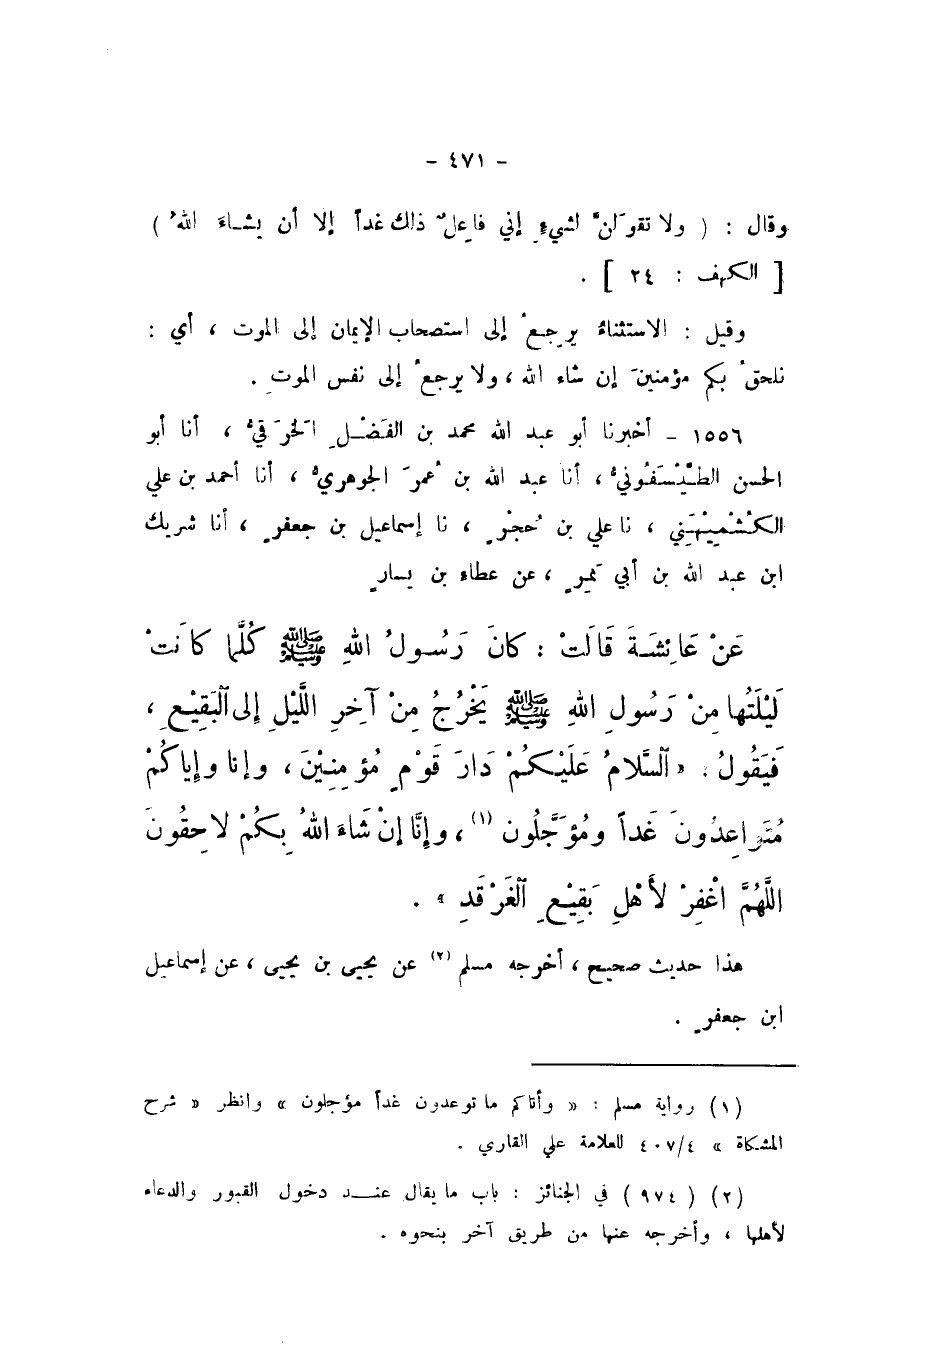 - ٤٧١ -
وقال : ( ولا تقولَنَّ لشيءٍ إني فاعلٌ ذلك غداً إلا أن يشاءَ اللهُ )
[ الكهف : ٢٤ ] .
وقيل : الاستثناءُ يرجعُ إلى استصحاب الإيمان إلى الموت ، أي :
نلحقُ بكم مؤمنينَ إن شاء الله ، ولا يرجعُ إلى نفس الموتِ .
١٥٥٦ - أخبرنا أبو عبد الله محمد بن الفَضْلِ الخَرَقيُّ ، أنا أبو
الحسن الطَّيْسَفُونيُّ ، أنا عبد الله بن عُمرَ الجوهريُّ ، أنا أحمد بن علي
الكُشْمِيْهَني ، نا علي بن حُجْرٍ ، نا إسماعيل بن جعفرٍ ، أنا شريك
ابن عبد الله بن أبي نَمِرٍ ، عن عطاء بن يسارٍ
عَنْ عَائِشَةَ قَالَتْ : كانَ رَسُولُ اللهِ ﷺ كُلَّما كانَتْ
لَيْلَتُها مِنْ رَسُولِ اللهِ ﷺ يَخْرُجُ مِنْ آخِرِ اللَّيْلِ إلى الْبَقِيْعِ ،
فَيَقُولُ : « السَّلامُ عَلَيْكُمْ دَارَ قَوْمٍ مُؤمِنِيْنَ ، وإنا وإياكُمْ
مُتَوَاعِدُونَ غَداً ومُؤَجَّلُون (١) ، وإنَّا إنْ شَاءَ اللهُ بِكُمْ لاحِقُونَ
اللَّهُمَّ اغْفِرْ لأَهْلِ بَقِيْعِ الْغَرْقَدِ » .
هذا حديث صحيح ، أخرجه مسلم (٢) عن يحيى بن يحيى ، عن إسماعيل
ابن جعفرٍ .
(١) رواية مسلم : « وأتاكم ما توعدون غداً مؤجلون » وانظر « شرح
المشكاة » ٤٠٧/٤ للعلامة علي القاري .
(٢) ( ٩٧٤ ) في الجنائز : باب ما يقال عند دخول القبور والدعاء
لأهلها ، وأخرجه عنها من طريق آخر بنحوه .